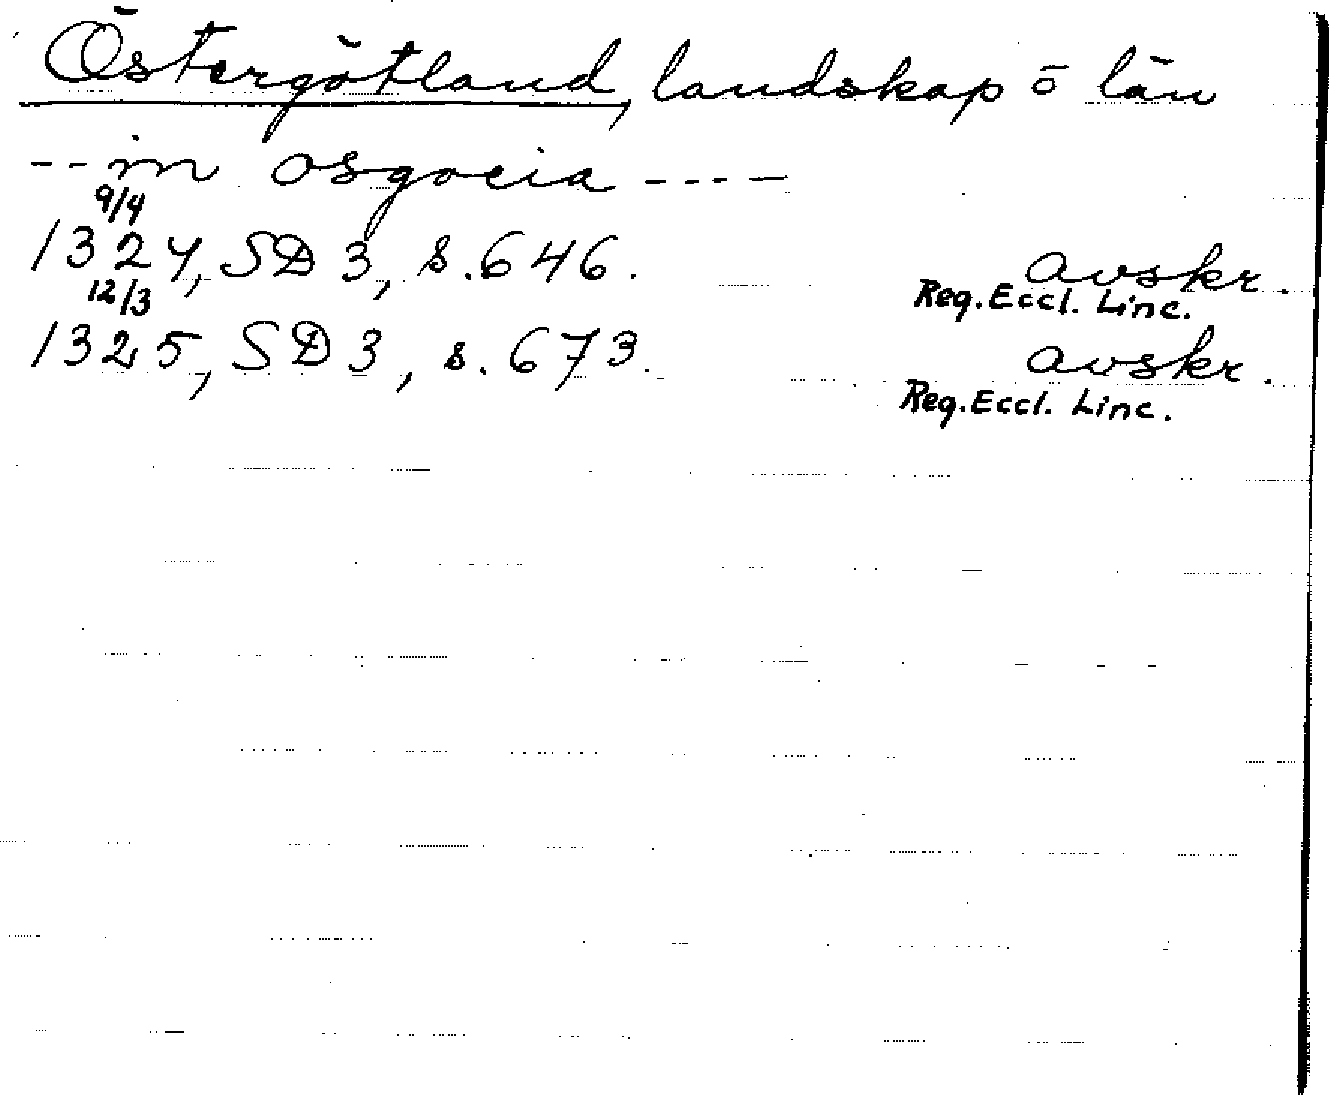 Östergötland, landskap o län
-- in osgocia ----
9/4
1324, SD 3, s. 646. avskr.
Reg. Eccl. Linc.
12/3
1325, SD 3, s. 673. avskr.
Reg. Eccl. Linc.